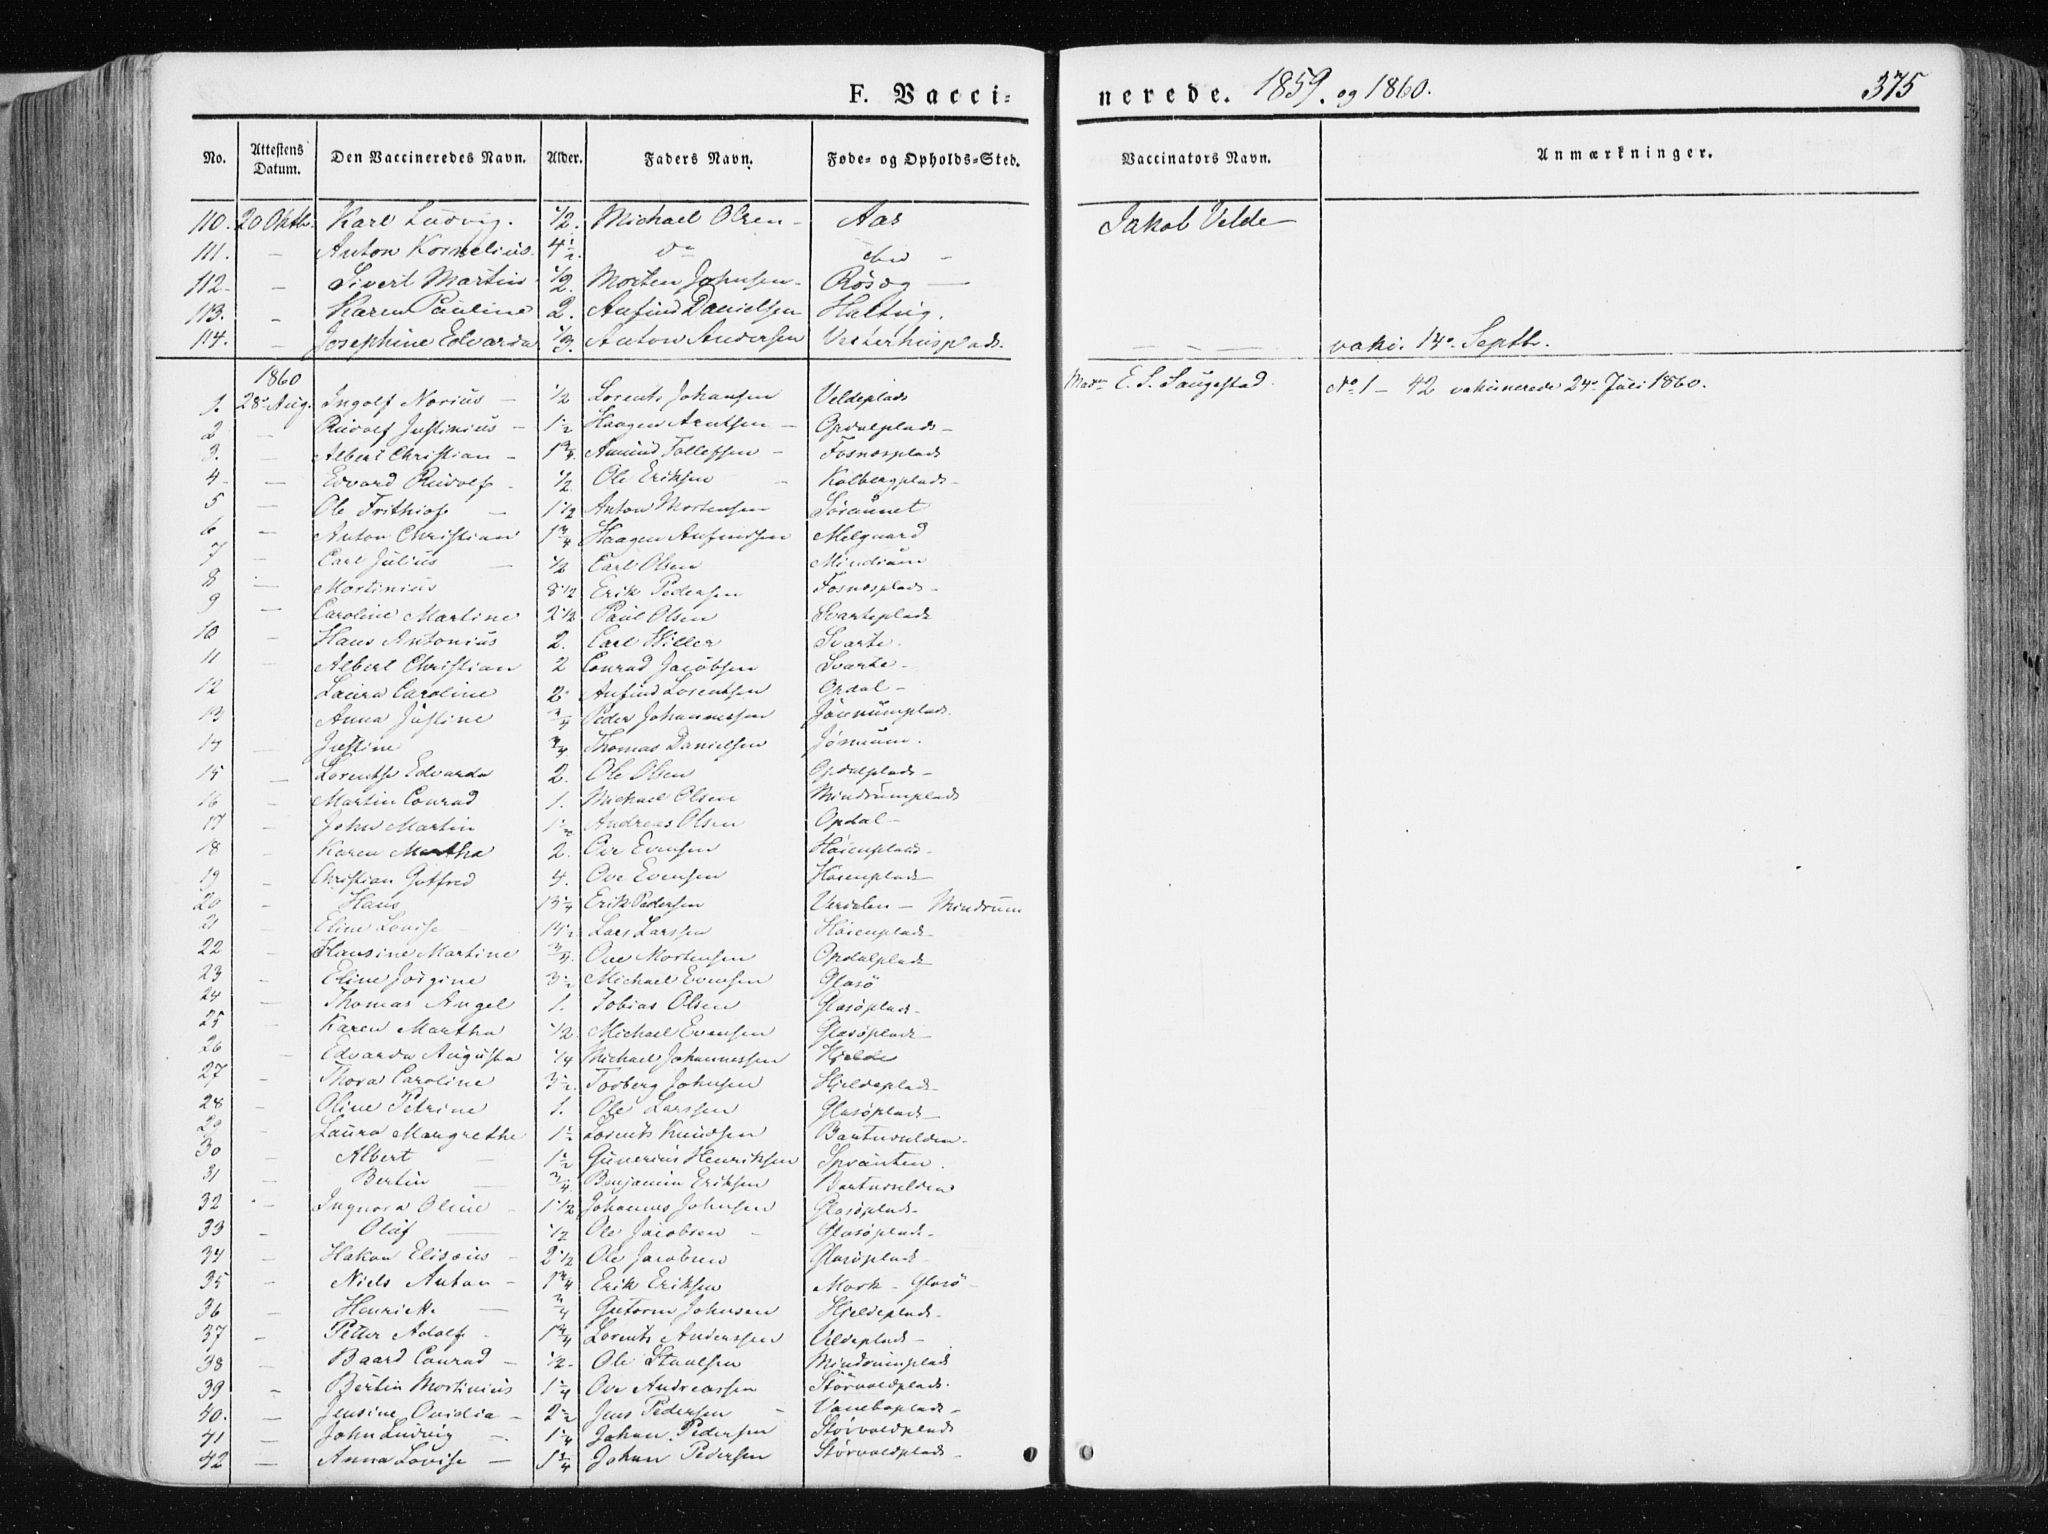 F. Vaccinerede. 1859. og 1860. 375
No. Attestens Datum. Den Vaccineredes Navn. Alder. Faders Navn. Føde- og Opholds-Sted. Vaccinators Navn. Anmærkninger.
110. 20 Oktb. Karl Ludvig. 1/2. Michael Olsen - Aas Jakob Velde
111. - Anton Kornelius. 4 1/2. do ibid -
112. - Sivert Martin 1/2 Morten Johnsen - Røsæg -
113. - Karen Pauline 2. Anfind Danielsen Haltvig.
114. - Josephine Edvarda 1/3. Anton Andersen Vesterhusplads. - - - vakc. 14. Septb.
1860
1. 28 Aug. Ingolf Norius - 1/2 Lorents Johansen Veldeplads Madm E. S. Saugestad. No 1 - 42 vakcinerede 24. Juli 1860.
2 - Rudolf Justinius - 1 1/2 Haagen Arntsen - Opdalplads -
3. - Albert Christian - 1 3/4 Amund Tollefsen - Fosnæsplads
4 - Edvard Rudolf - 1/2. Ole Eriksen - Kolbergplads -
5 - Ole Frithiof - 1 1/2 Anton Mortensen
6 - Anton Christian 1 3/4 Haagen Anfindsen Melgaard
7 - Carl Julius - 1/2 Carl Olsen Mindrum
8 - Mortinius 8 1/2 Erik Pedersen Fosnæsplads -
9 - Caroline Martine 2 1/2 Paul Olsen Svarteplads
10 - Hans Antonius 2. Carl Hiller Svarte.
11 - Albert Christian 2 Conrad Jacobsen Svarte -
12 Laura Caroline 2 Anfind Lorentsen Opdal -
13 - Anna Justine 3/4 Peder Johannessen Jörnumplads.
14 - Justine 3/4 Thomas Danielsen Jörnum.
15 - Lorentse Edvarda 2. Ole Olsen Opdalplads -
16 - Martin Conrad 1. Michael Olsen Mindrumplads
17 - John Martin 1 1/2 Andreas Olsen Opdal -
18 - Karen Martha 2. Ove Evensen Høienplads -
19 - Christian Gotfred 4. Ove Evensen Høienplads -
20 - Hans 13 1/4 Erik Pedersen Værdalen - Mindrum
21 - Eline Lovise - 14 1/2 Lars Larssen Høienplads -
22 - Hansine Martine 3/4. Ove Mortensen Opdalplads
23 - Eline Jörgine 3 1/2 Michael Evensen Glasö
24 - Thomas Angel 1. Tobias Olsen Glasöplads -
25 - Karen Martha 1/2 Michael Evensen Glasöplads -
26 - Edvarda Augusta 1/4 Michael Johannessen Hjelde
27 - Thora Caroline 3 1/2. Torberg Johnsen Hjeldeplads -
28 - Oline Petrine 1. Ole Larssen Glasöplads -
29 - Laura Margrethe 1 1/2 Lorents Knudsen Bartnesalden -
30 - Albert - 1 1/2 Gunerius Henriksen Sprauten.
31 - Bertin - 3/4. Benjamin Eriksen Bartnesalden
32 - Ingnora Oline - 1 1/2 Johannes Johnsen Glasöplads -
33 - Oluf - 1/2 Ole Jacobsen - Glasöplads -
34 - Hakon Elisæus - 2 1/2 Ole Jacobsen Glasöplads
35 - Niels Anton - 1 3/4 Erik Eriksen Mork - Glasö -
36 - Henriette - 3/4 Guttorm Johnsen Hjeldeplads -
37 - Petter Adolf - 1 3/4 Lorents Anderssen Veldeplads -
38 - Baard Conrad - 1/2. Ole Staalsen Mindrumplads
39 - Bertin Mortinius 1 1/4 Ove Andreassen Størvoldplads -
40. - Jensine Ovidia - 2 1/2 Jens Pedersen - Vaneboplads -
41 - John Ludvig - 1 1/4 Johan Pedersen Størvoldplads
42 - Anna Lovise - 1 3/4 Johan Pedersen Størvoldplads -